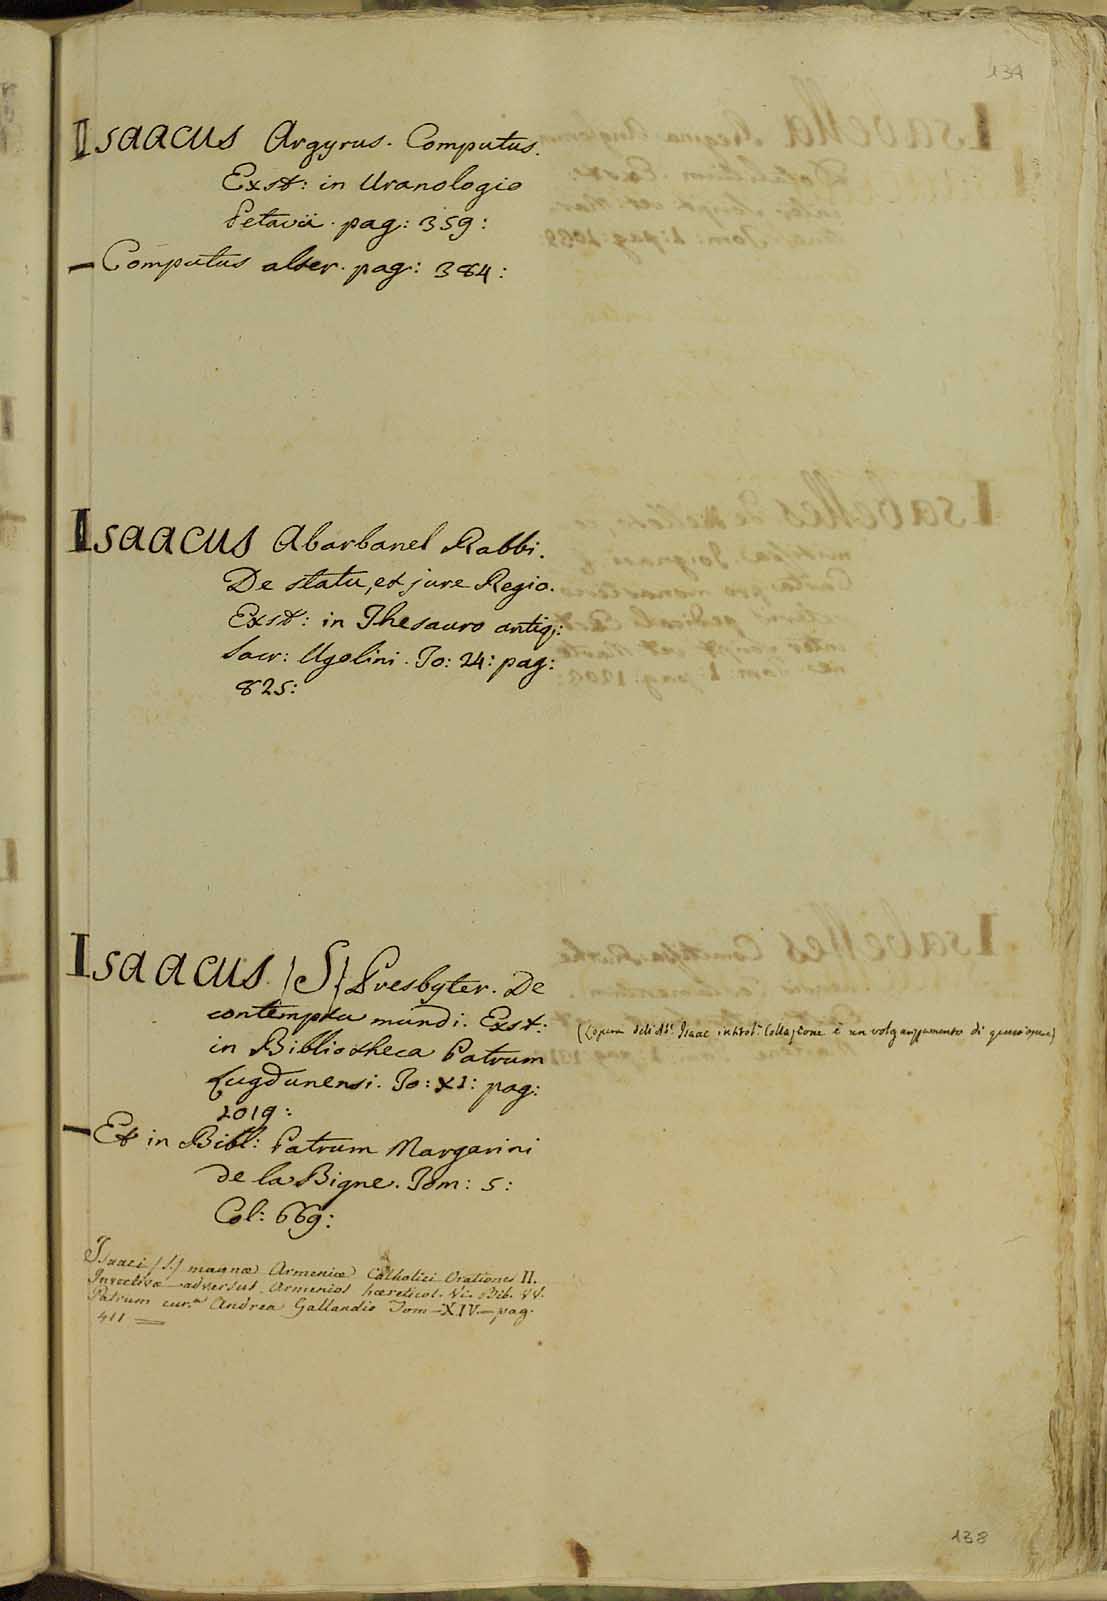 134
Isaacus Argyrus. Computus.
Exst: in Uranologio
Petavii. pag: 359:
— Computus alter. pag: 384:
Isaacus Abarbanel Rabbi.
De statu, et jure Regio.
Exst: in Thesauro antiq:
Sacr: Ugolini. To: 24: pag:
825:
Isaacus (S) Presbyter. De
contemptu mundi. Exst:
in Bibliotheca Patrum
Lugdunensi. To: XI: pag:
2019:
(L'opera dell'Ab.e Isaac intitol.a Collazione è un volgarizzamento di quest'opera)
— Et in Bibl: Patrum Margarini
de la Bigne. Tom: 5:
Col: 669:
Isaaci (S.) magnæ Armeniæ Catholici Orationes II.
Invectivæ adversus Armenios hæreticos. Bib. VV.
Patrum cur.a Andrea Gallandio Tom—XIV.—pag.
411
138